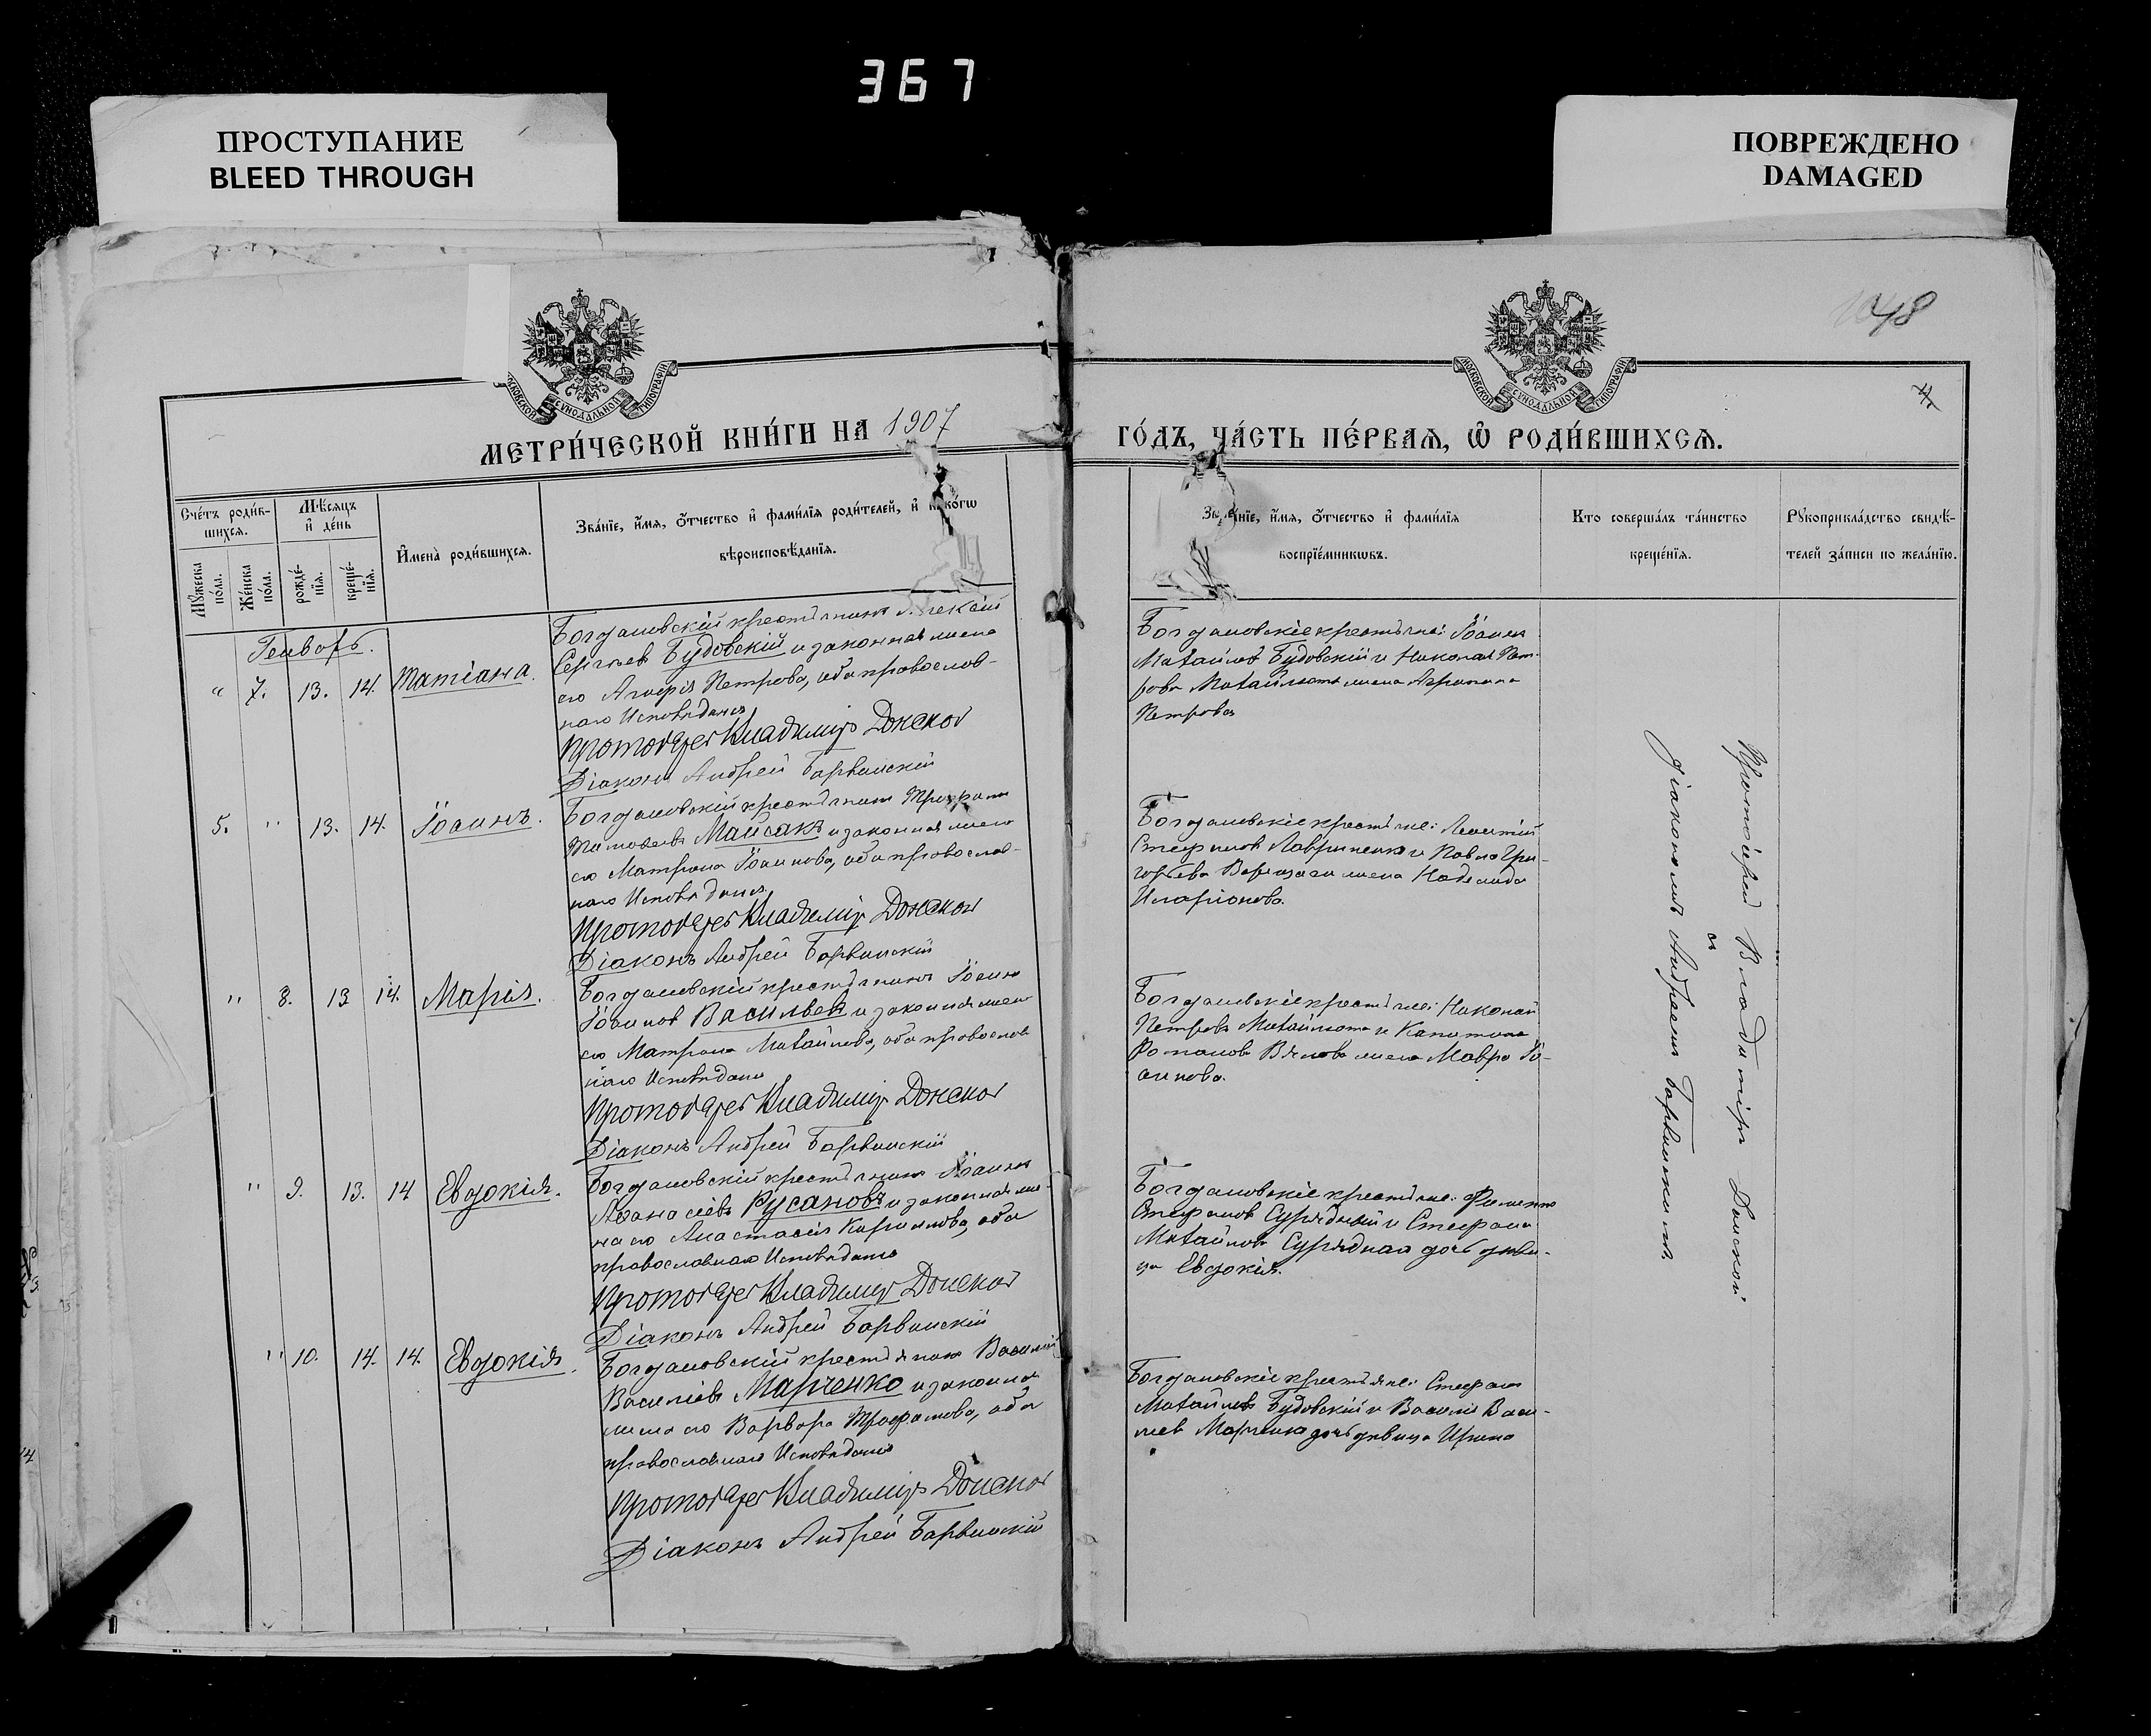 367
ПРОСТУПАНИЕ
BLEED THROUGH
ПОВРЕЖДЕНО
DAMAGED
48
СУНОДАЛЬНОЙ ТИПОГРАФІИ
МОСКОВСКОЙ СУНОДАЛЬНОЙ ТИПОГРАФІИ
МЕТРИ́ЧЕСКОЙ КНИ́ГИ НА 1907
ГО́ДЪ, ЧА́СТЬ ПЕ́РВАѦ, Ѽ РОДИ́ВШИХСѦ.
Сче́тъ роди́в-
шихсѧ.
Мꙋ́жеска по́ла.
Же́нска по́ла.
Мѣ́сяцъ и҆ де́нь
рожде́-
нїѧ.
креще́-
нїѧ.
И҆мена̀ роди́вшихсѧ.
Зва́нїе, и҆́мѧ, ѻ҆́тчество и҆ фами́лїѧ роди́телей, и҆ како́гѡ
вѣроисповѣ́данїѧ.
Зва́нїе, и҆́мѧ, ѻ҆́тчество и҆ фами́лїѧ
воспрїе́мникѡвъ.
Кто соверша́лъ та́инство
креще́нїѧ.
Рꙋкоприкла́дство свидѣ́-
телей за́писи по жела́нїю.
Генварь.
" 7. 13. 14. Татіана.
Богдановскій крестьянинъ Алексій
Сергіевъ Будовскій и законная жена
его Петрова, оба православ-
наго Исповѣданія
Протоіерей Владимиръ Донской
Діаконъ Андрей Барвинскій
Богдановскіе крестьяне: Іоаннъ
Михайловъ Будовскій и Николая Пет-
рова жена Агрипина
Петрова
5. " 13. 14. Іоаннъ.
Богдановскій крестьянинъ Трофимъ
Майсакъ и законная жена
его Матрона Іоаннова, оба православ-
наго Исповѣданія
Протоіерей Владимиръ Донской
Діаконъ Андрей Барвинскій
Богдановскіе крестьяне: Леонтій
Стефановъ Лавриненко и Павла Гри-
горьева жена Надежда
Иларіонова.
" 8. 13 14. Марія.
Богдановскій крестьянинъ Іоаннъ
Іоанновъ Васильевъ и законная жена
его Матрона Михайлова, оба православ-
наго Исповѣданія
Протоіерей Владимиръ Донской
Діаконъ Андрей Барвинскій
Богдановскіе крестьяне: Николай
Петровъ и Капитона
Романова жена Мавра Іо-
аннова.
" 9. 13. 14 Евдокія.
Богдановскій крестьянинъ Іоаннъ
Аѳанасіевъ Русановъ и законная же-
на его Анастасія Кириллова, оба
православнаго Исповѣданія
Протоіерей Владимиръ Донской
Діаконъ Андрей Барвинскій
Богдановскіе крестьяне:
Стефановъ Сурядный и Стефана
Михайлова Суряднаго дочь дѣви-
ца Евдокія.
" 10. 14. 14. Евдокія.
Богдановскій крестьянинъ Василій
Василіевъ Марченко и законная
жена его Варвара Трофимова, оба
православнаго Исповѣданія
Протоіерей Владимиръ Донской
Діаконъ Андрей Барвинскій
Богдановскіе крестьяне: Стефанъ
Михайловъ Будовскій и Василія Васи-
лиева Марченка дочь дѣвица Ирина
Протоіерей Владимиръ Донской
и
діакономъ Андреемъ Барвинскимъ.